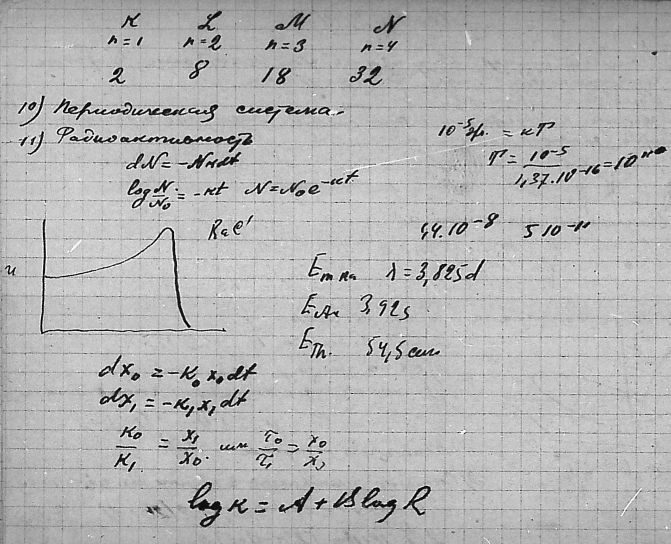 K L M N
n=1 n=2 n=3 n=4
2 8 18 32
10) Периодическая система.
11) Радиоактивность
dN = -Nκdt
log N/N₀ = -κt N = N₀e^-κt
10^-5 эр. = κT
T = 10^-5 / 1,37.10^-16 = 10
Ra C'
4,4.10^-8 5 10^-11
u
Em Ra λ = 3,825d
E An 3,92s
E Th. 54,5 сек
dx₀ = -κ₀x₀dt
dx₁ = -κ₁x₁dt
κ₀/κ₁ = x₁/x₀. или τ₀/τ₁ = x₀/x₁
log κ = A + B log R